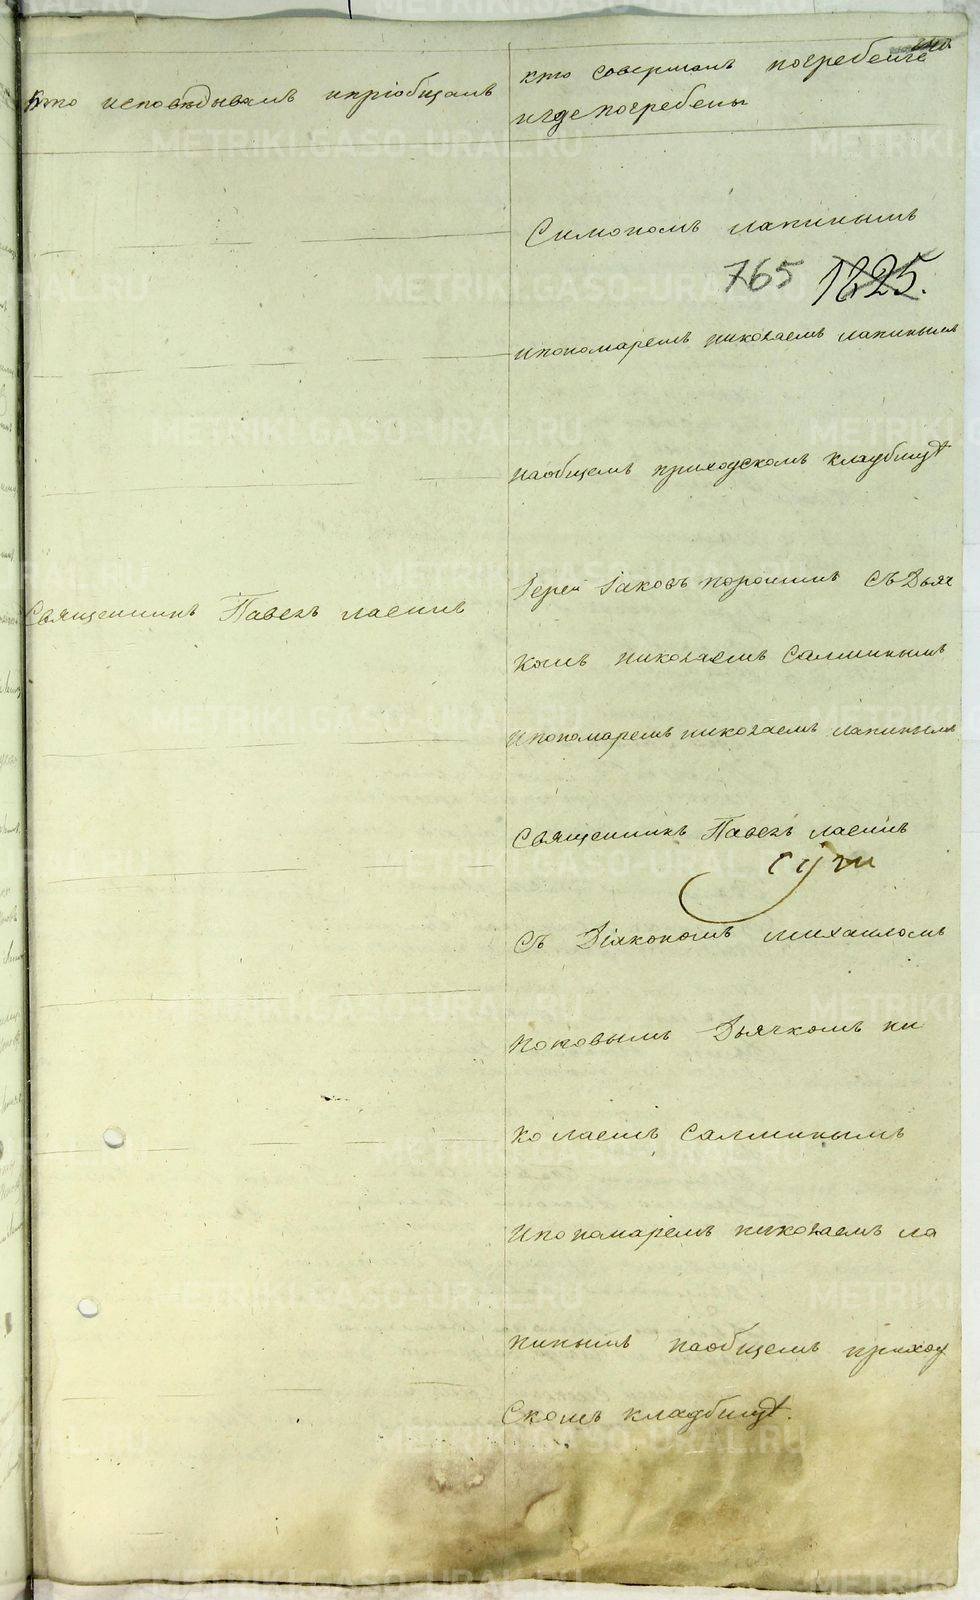 Кто исповѣдывалъ и пріобщалъ
кто совершалъ погребеніе
и гдѣ погребены
Симономъ Лапинымъ
765 1825.
и пономаремъ николаемъ Лапинымъ
на общемъ приходскомъ кладбищѣ
Священникъ Павелъ
Іерей Іаковъ Порошинъ съ Дьяч
комъ николаемъ Салминымъ
и пономаремъ николаемъ Лапинымъ
Священникъ Павелъ
съ Діакономъ михаиломъ
поповымъ Дьячкомъ ни
колаемъ Салминымъ
и пономаремъ николаемъ ла
пинымъ на общемъ приход
скомъ кладбищѣ.
METRIKI.GASO-URAL.RU